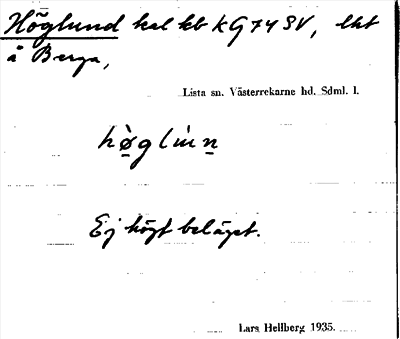 Höglund kal kb kG74 SV, lht
å Berga,
Lista sn. Västerrekarne hd. Sdml. l.
hø̀glùn
Ej högt beläget.
Lars Hellberg 1935.